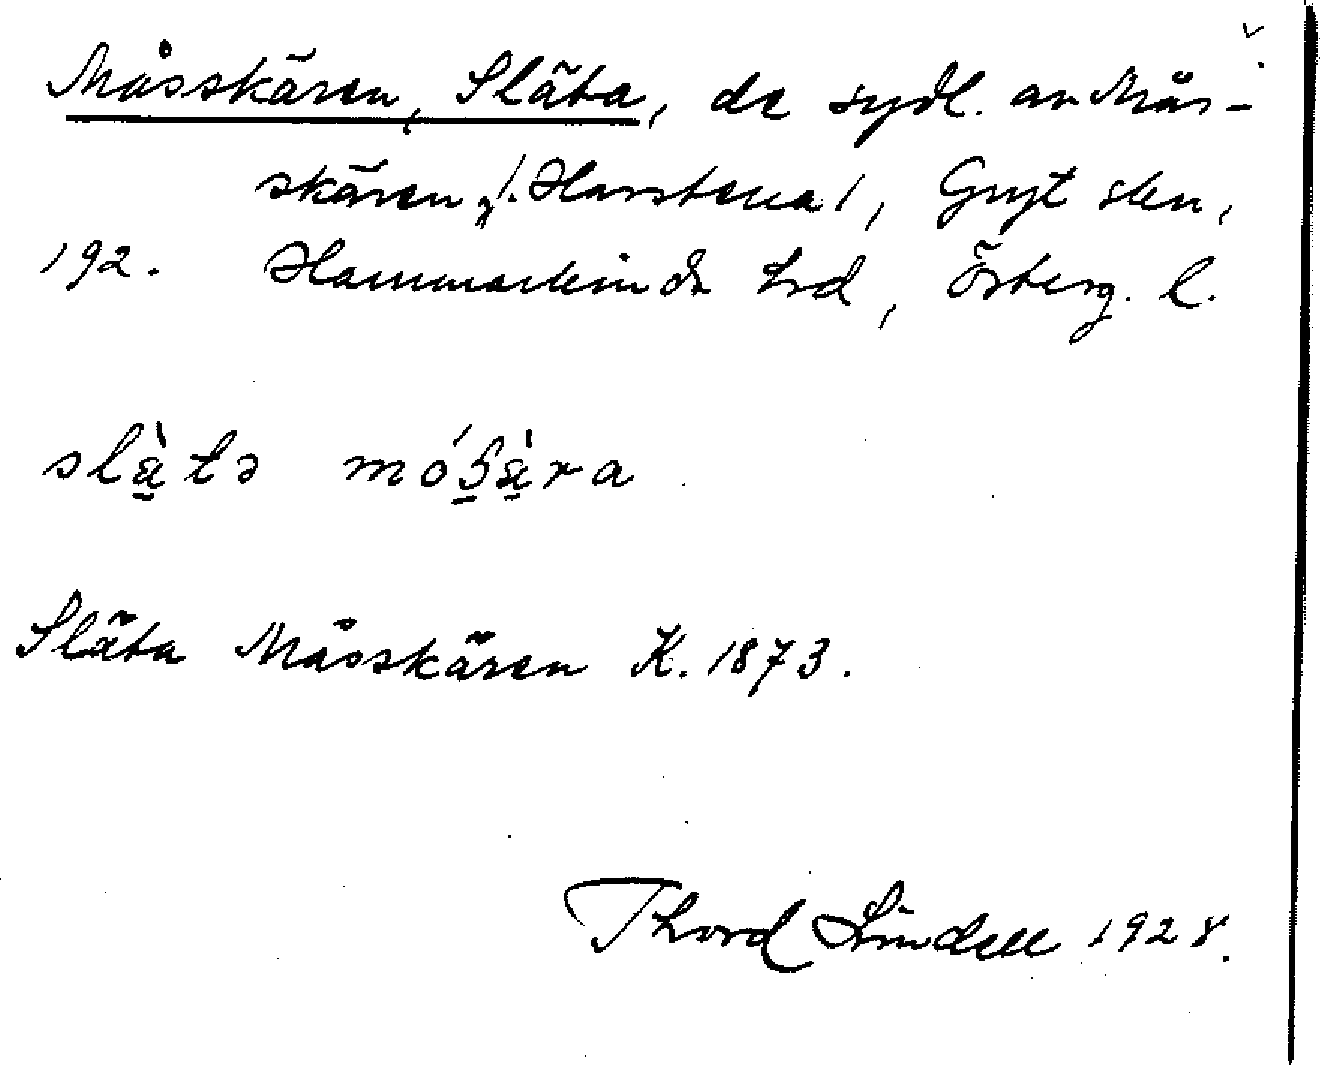 Måsskären, Släta, de sydl. av Mås-
skären, /. Harstena/, Gryt skn,
192. Hammarkinds hrd, Österg. l.
slàtə mó ra
Släta Måsskären K. 1873.
Thord Lindell 1928.